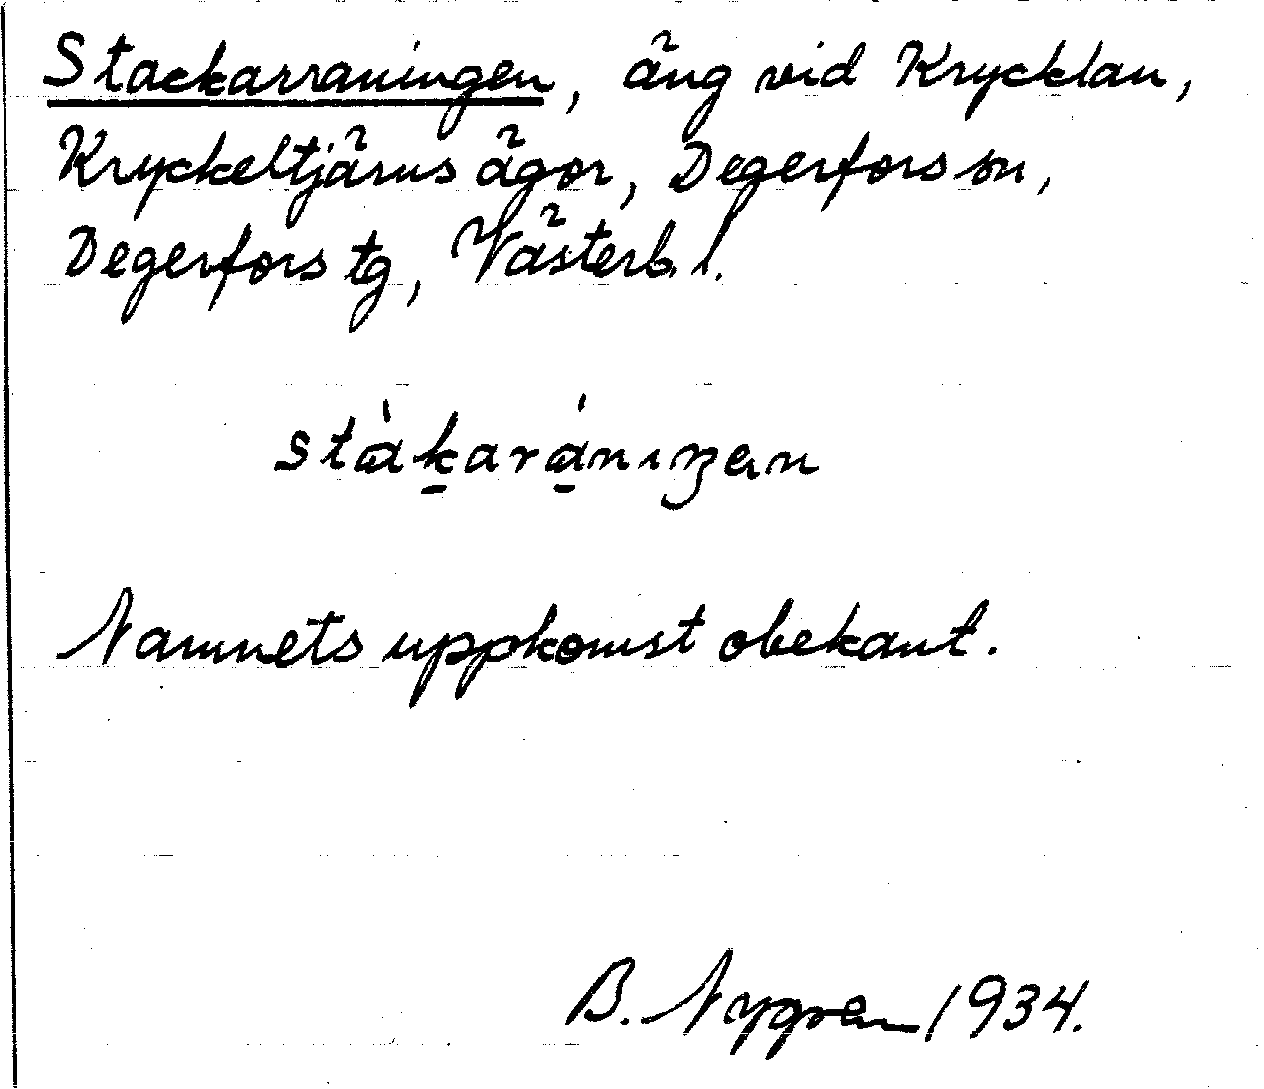 Stackarraningen, äng vid Krycklan,
Kryckeltjärns ägor, Degerfors sn,
Degerfors tg, Västerb. l.
stàk̲ará̲nıŋen
Namnets uppkomst obekant.
B. Nygren 1934.